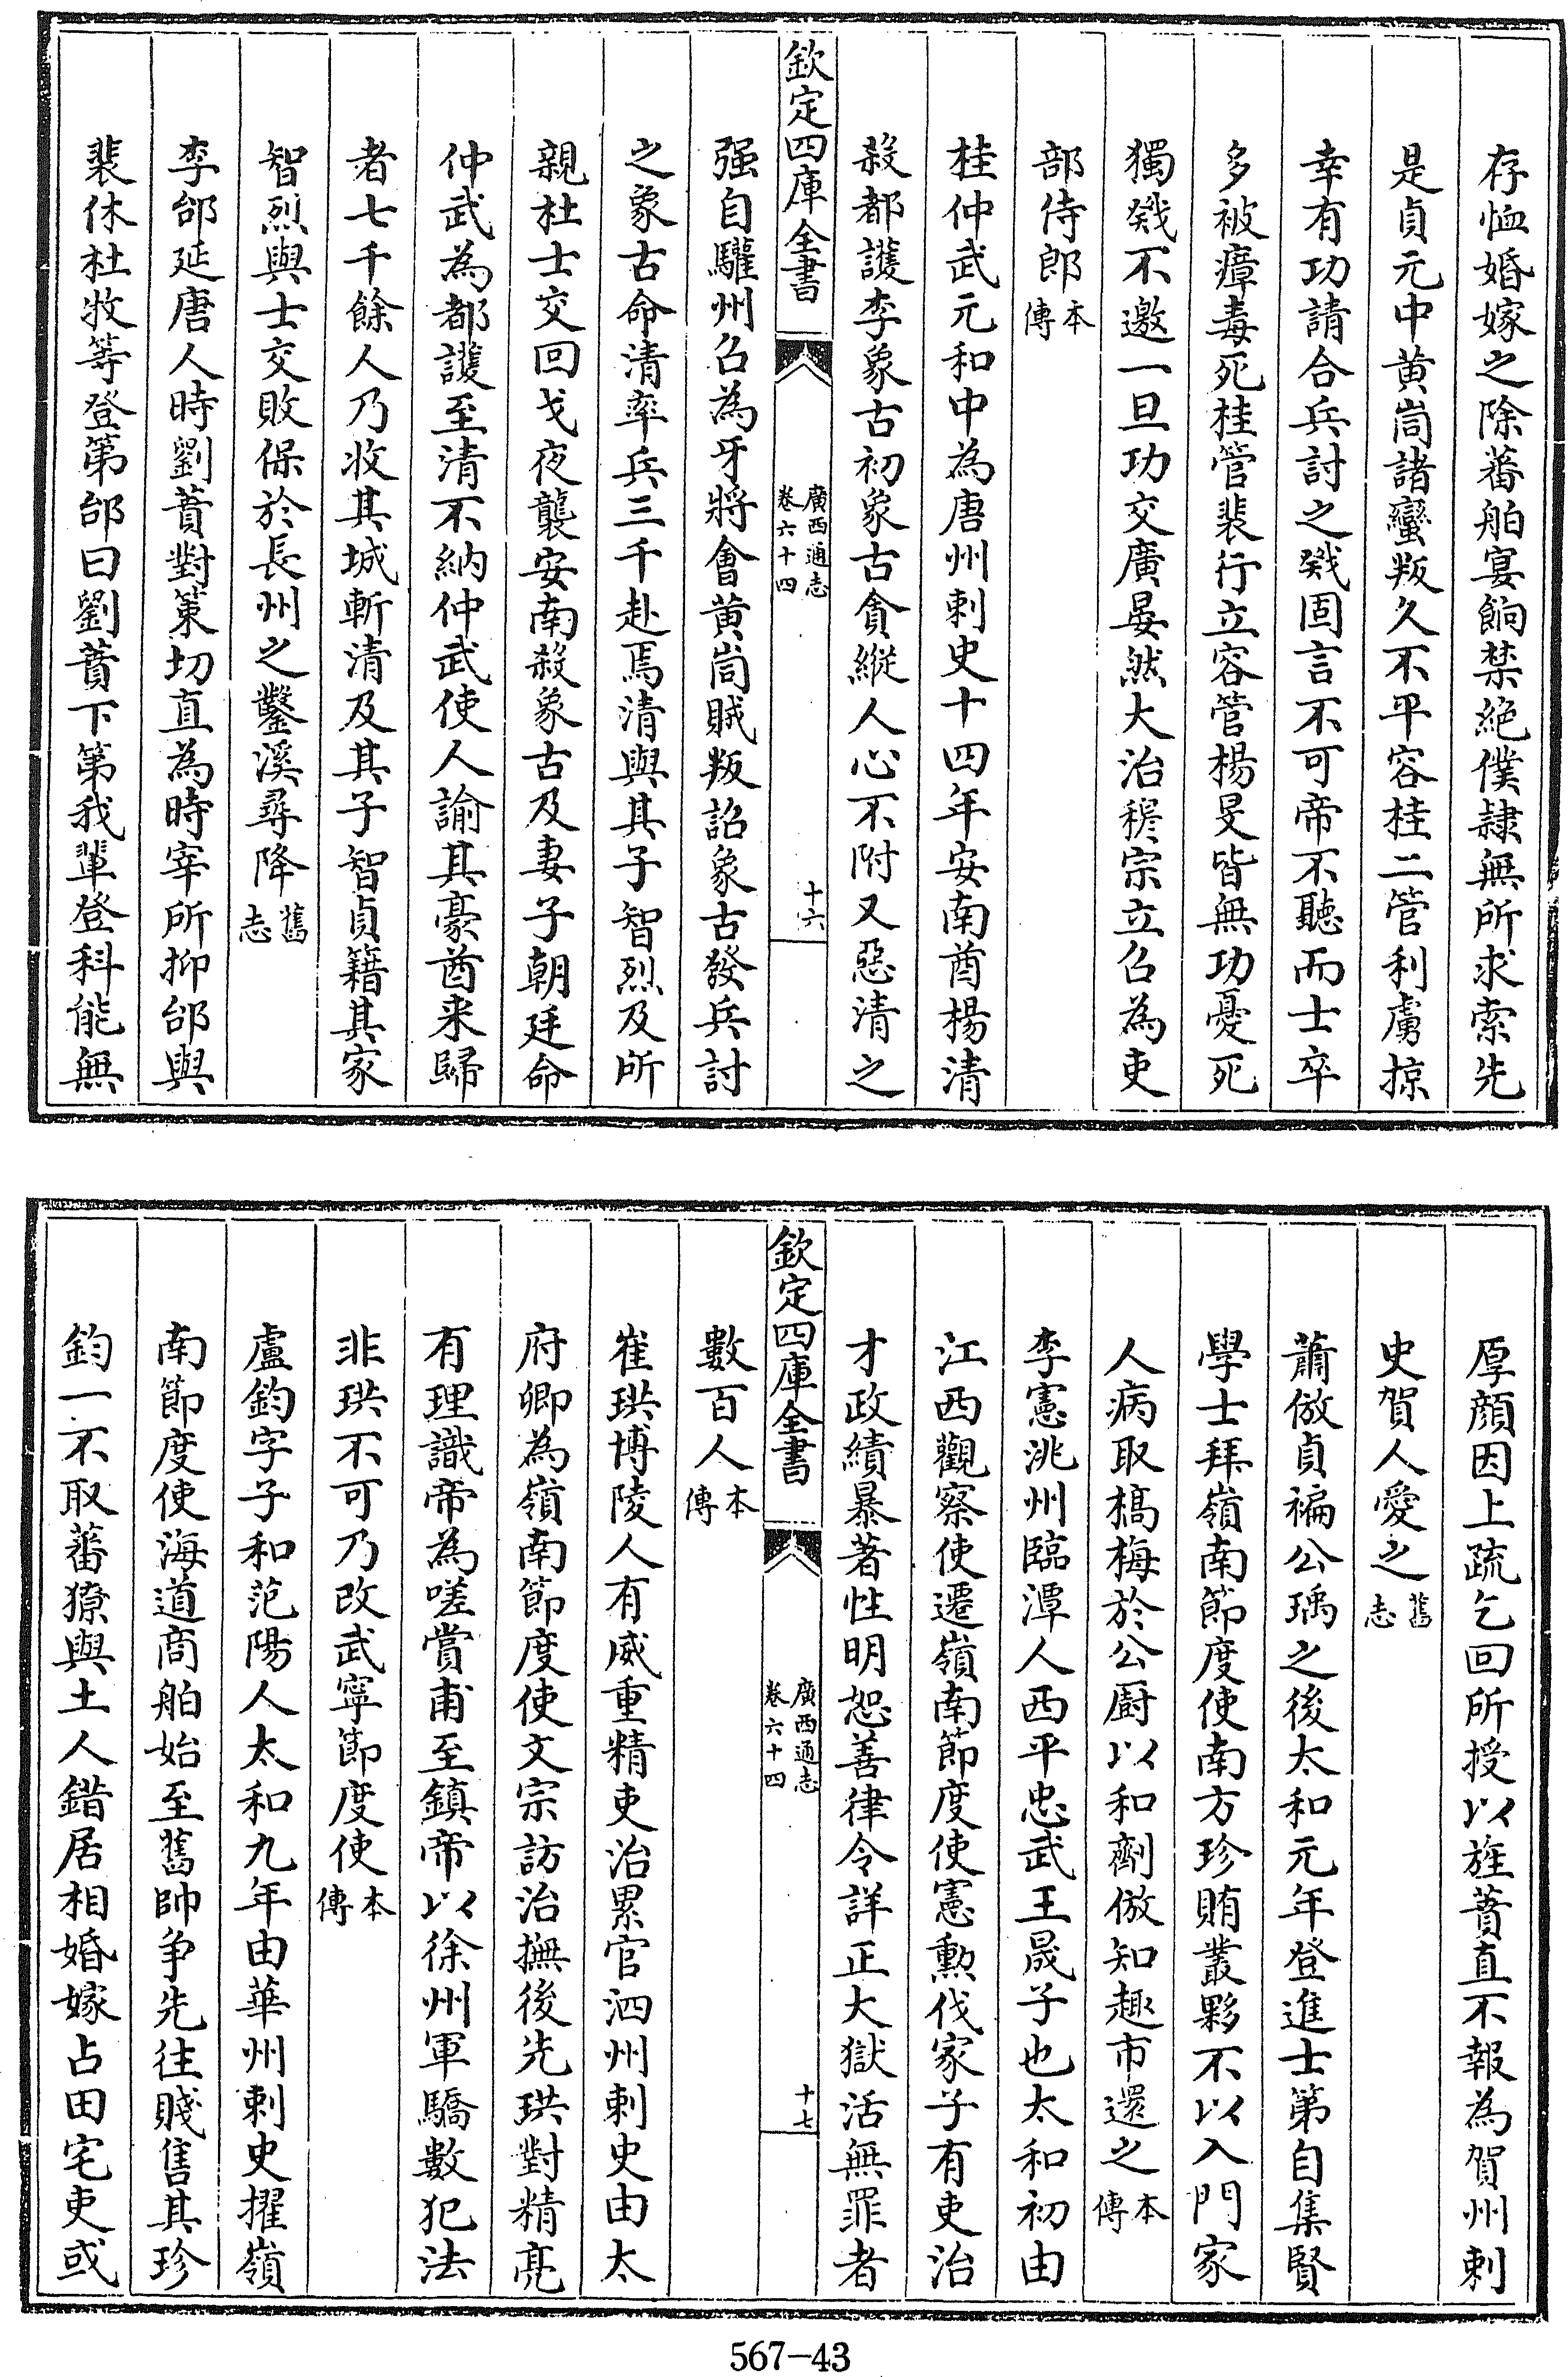 存恤婚嫁之除蕃舶宴餉禁絶僕隷無所求索先
是貞元中黄峝諸蠻叛久不平容桂二管利虜掠
幸有功請合兵討之戣固言不可帝不聽而士卒
多被瘴毒死桂管裴行立容管楊旻皆無功憂死
獨戣不邀一旦功交廣晏然大治穆宗立召為吏
部侍郎本傳
桂仲武元和中為唐州刺史十四年安南酋楊清
殺都護李象古初象古貪縱人心不附又惡清之
欽定四庫全書
廣西通志
卷六十四
十六
强自驩州召為牙將會黄峝賊叛詔象古發兵討
之象古命清率兵三千赴焉清與其子智烈及所
親杜士交回戈夜襲安南殺象古及妻子朝廷命
仲武為都護至清不納仲武使人諭其豪酋來歸
者七千餘人乃收其城斬清及其子智貞籍其家
智烈與士交敗保於長州之鑿溪尋降舊志
李郃延唐人時劉蕡對策切直為時宰所抑郃與
裴休杜牧等登第郃曰劉蕡下第我輩登科能無
厚顔因上疏乞回所授以旌蕡直不報為賀州刺
史賀人愛之舊志
蕭倣貞褊公瑀之後太和元年登進士第自集賢
學士拜嶺南節度使南方珍賄叢夥不以入門家
人病取槁梅於公厨以和劑倣知趣市還之本傳
李憲洮州臨潭人西平忠武王晟子也太和初由
江西觀察使遷嶺南節度使憲勲伐家子有吏治
才政績暴著性明恕善律令詳正大獄活無罪者
欽定四庫全書
廣西通志
卷六十四
十七
數百人本傳
崔珙博陵人有威重精吏治累官泗州刺史由太
府卿為嶺南節度使文宗訪治撫後先珙對精亮
有理識帝為嗟賞甫至鎮帝以徐州軍驕數犯法
非珙不可乃改武寧節度使本傳
盧鈞字子和范陽人太和九年由華州刺史擢嶺
南節度使海道商舶始至舊帥争先往賤售其珍
鈞一不取蕃獠與土人錯居相婚嫁占田宅吏或
567-43